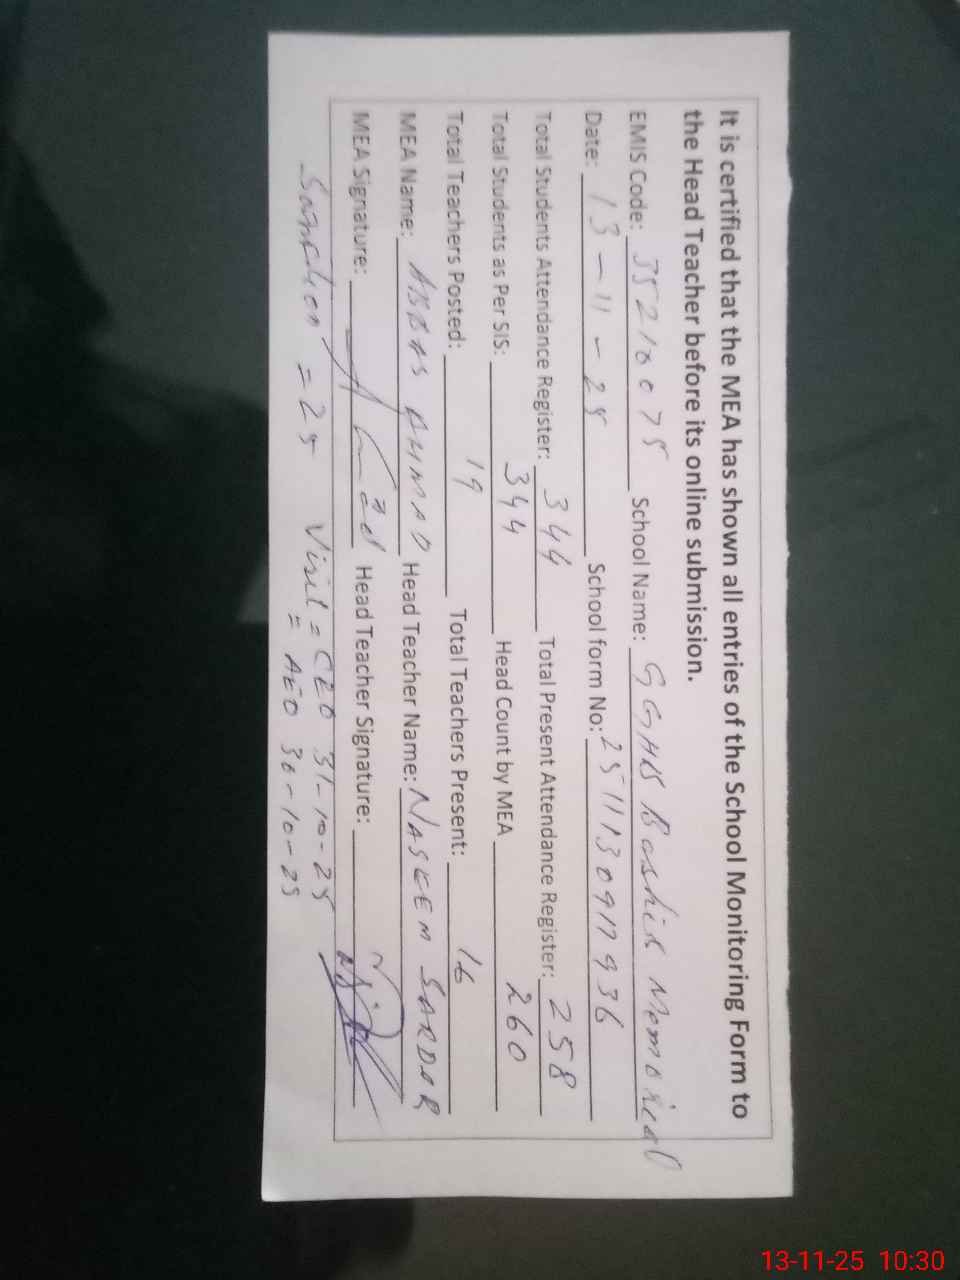 It is certified that the MEA has shown all entries of the School Monitoring Form to
the Head Teacher before its online submission.
EMIS Code: 35210075 School Name: GGHS Bashir Memorial
Date: 13-11-25 School form No: 2511130917936
Total Students Attendance Register: 344 Total Present Attendance Register: 258
Total Students as Per SIS: 344 Head Count by MEA 260
Total Teachers Posted: 19 Total Teachers Present: 16
MEA Name: ABBAS AHMAD Head Teacher Name: NASEEM SARDAR
MEA Signature: Head Teacher Signature:
Sanction = 25 Visit = CEO 31-10-25
= AEO 30-10-25
13-11-25 10:30